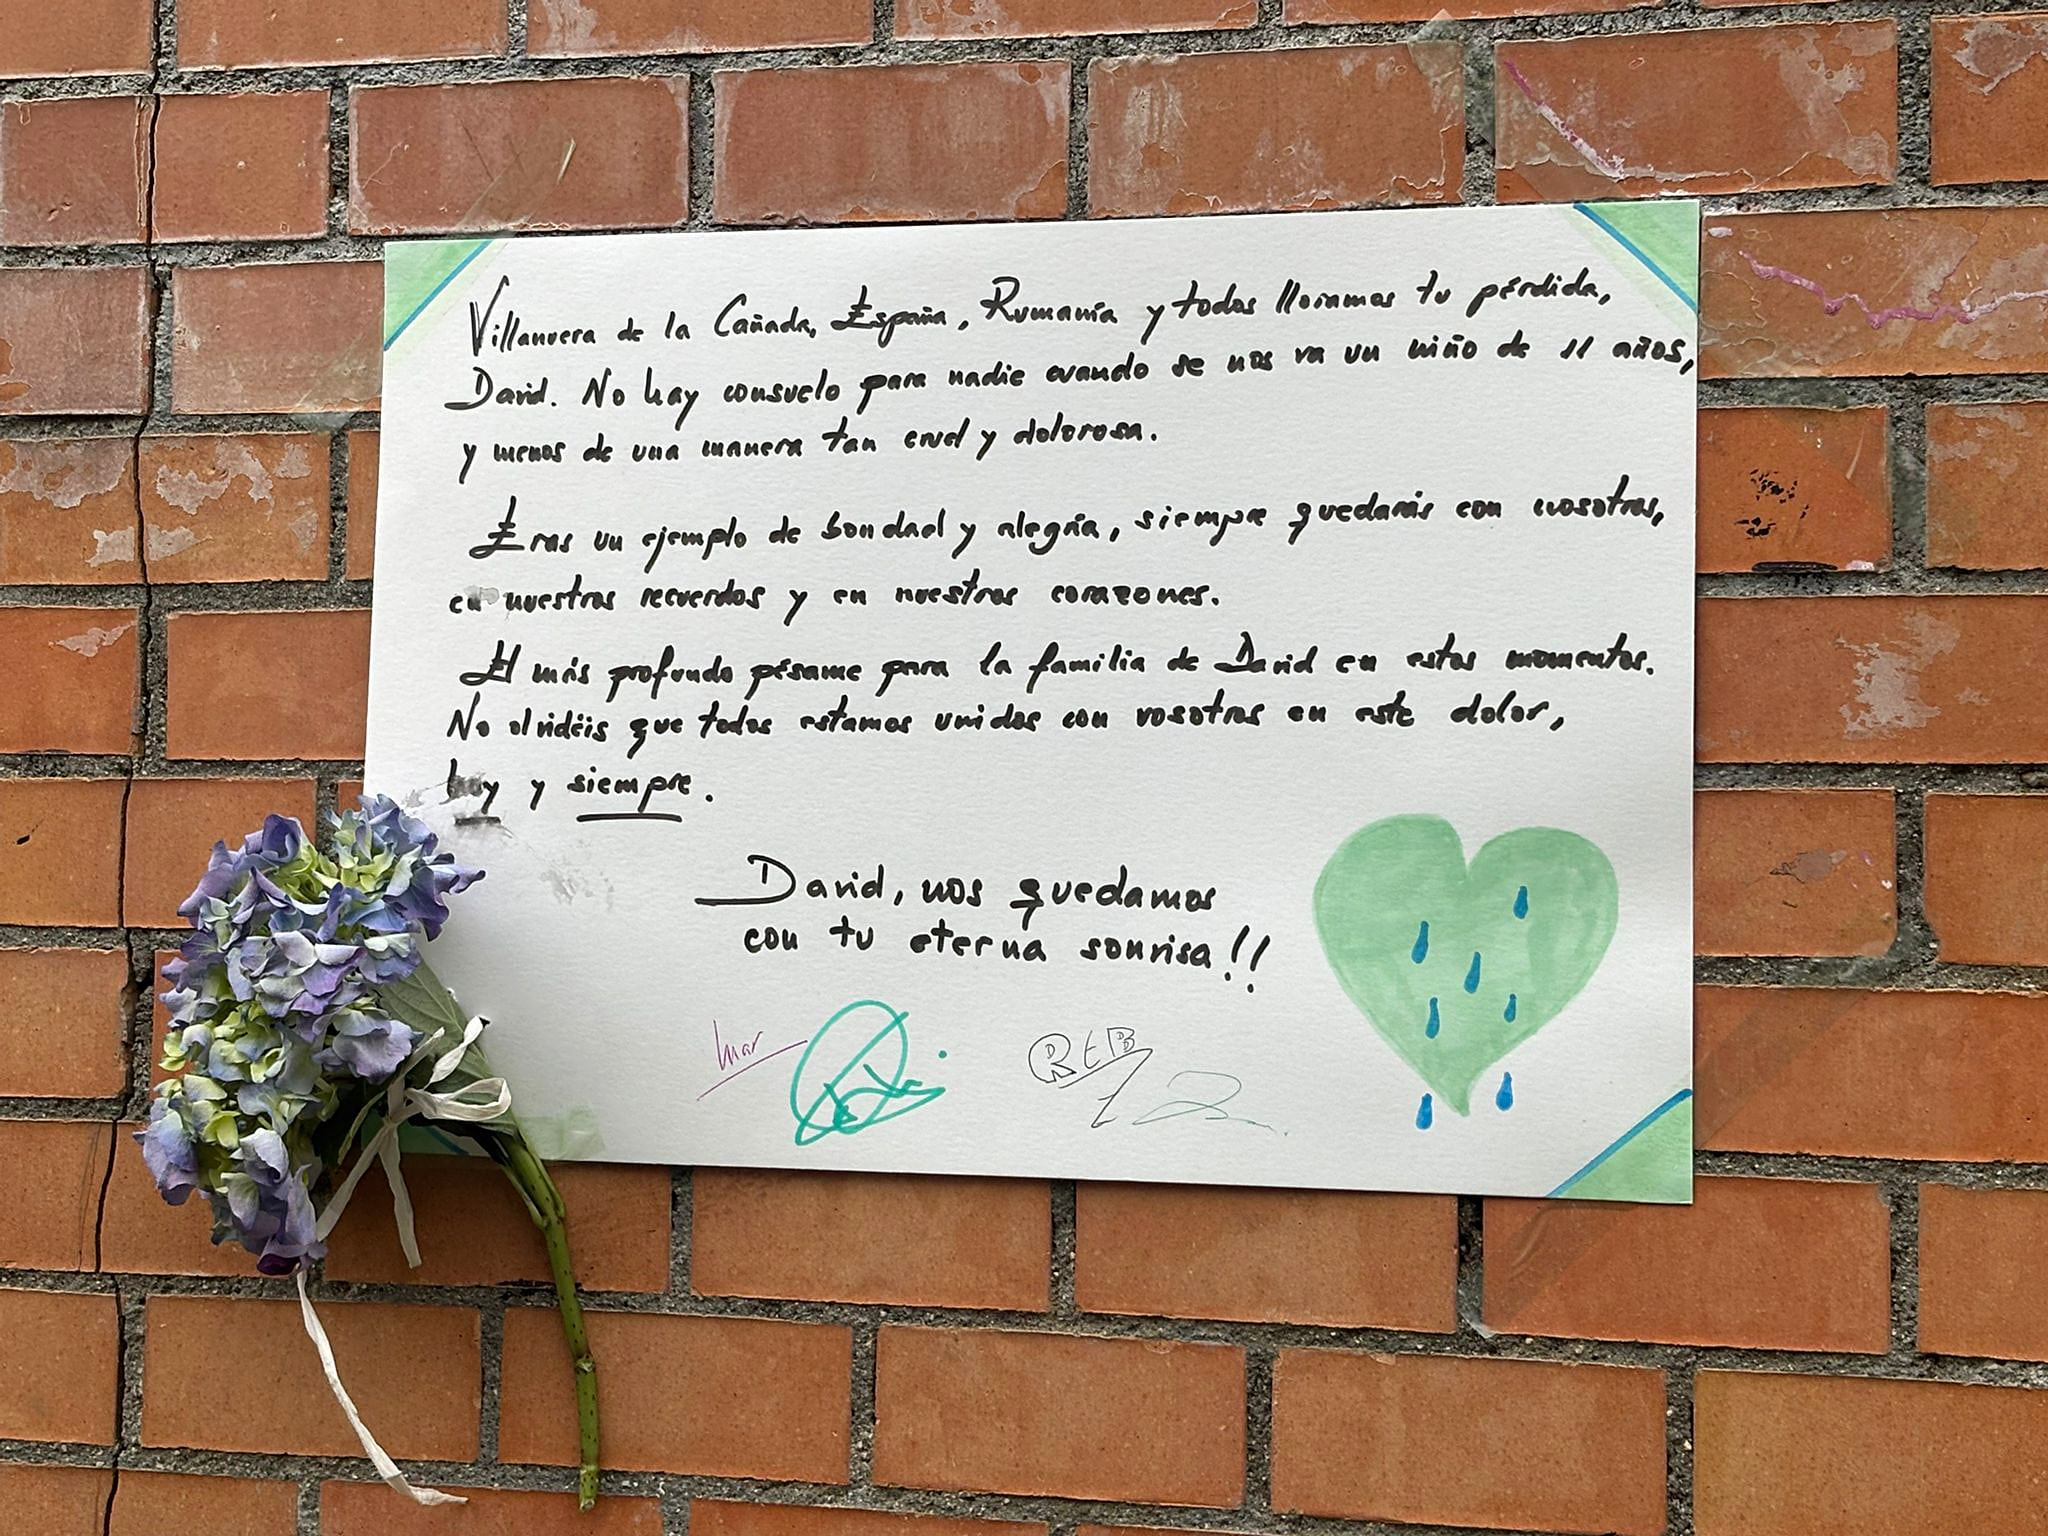 Villanueva de la Cañada, España, Rumanía y todos lloramos tu pérdida,
David. No hay consuelo para nadie cuando se nos va un niño de 11 años,
y menos de una manera tan cruel y dolorosa.
Eras un ejemplo de bondad y alegría, siempre quedarás con nosotros,
en nuestros recuerdos y en nuestros corazones.
El más profundo pésame para la familia de David en estos momentos.
No olvidéis que todos estamos unidos con vosotros en este dolor,
hoy y siempre.
David, nos quedamos
con tu eterna sonrisa!!
Mar